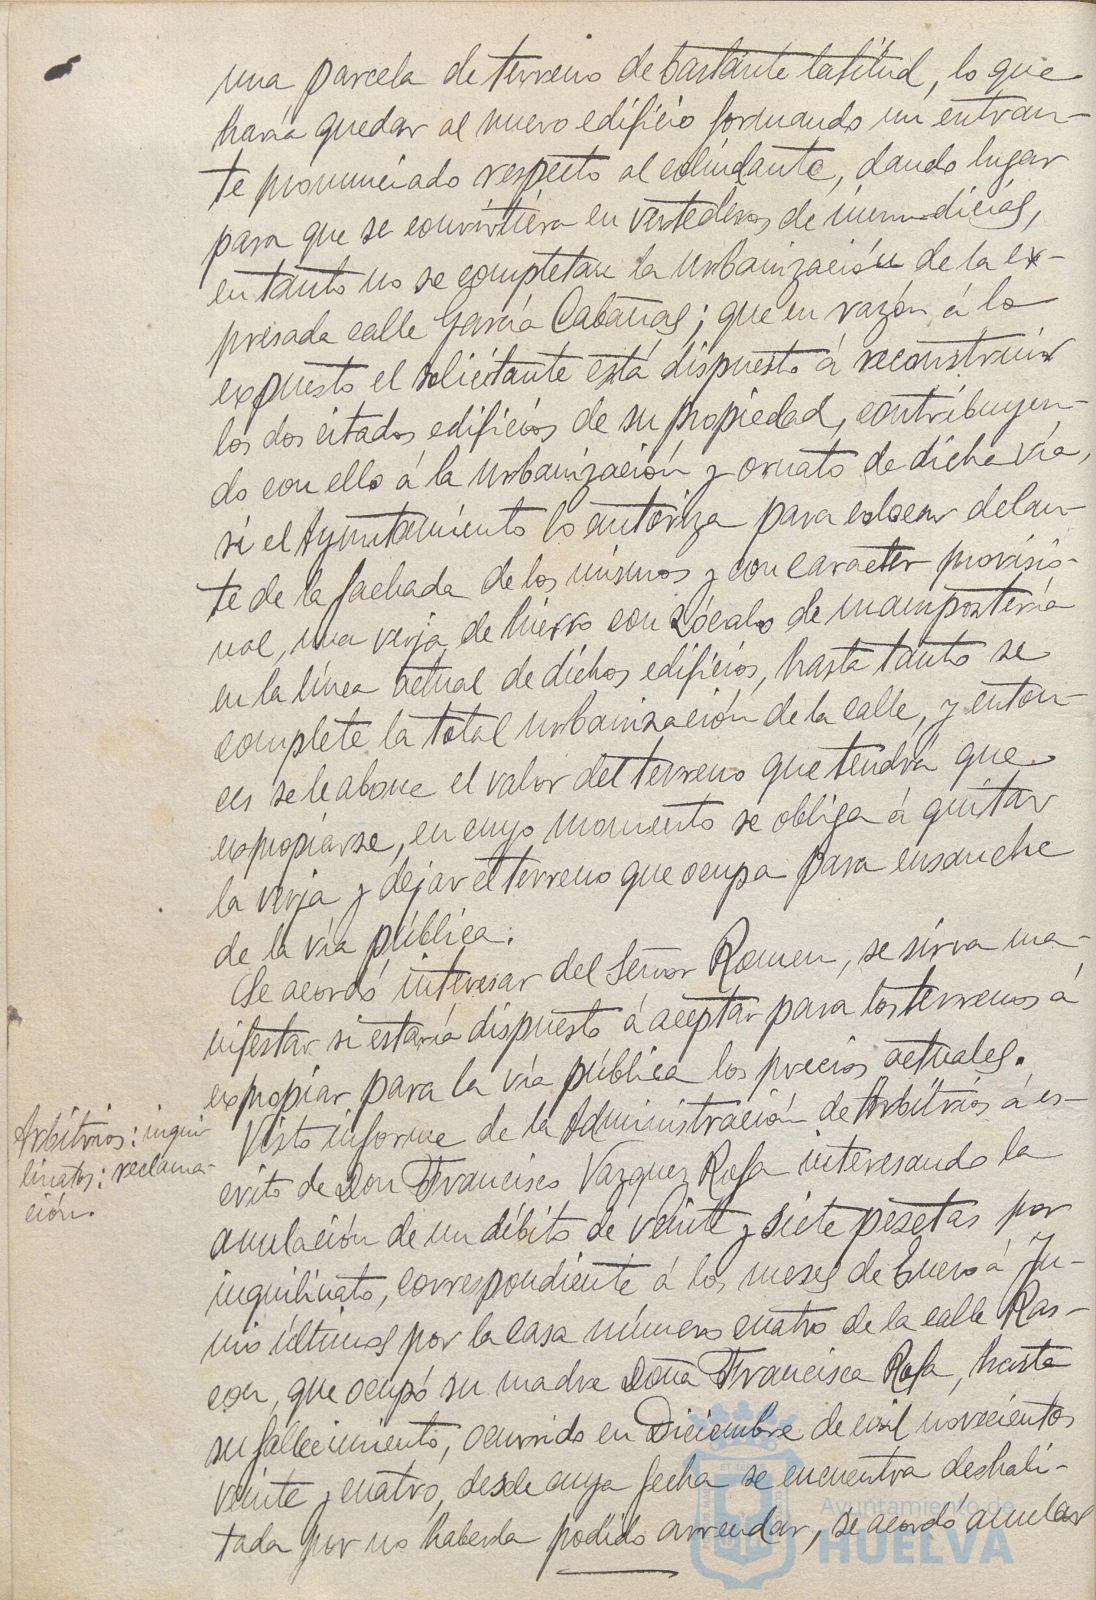 una parcela de terreno de bastante latitud, lo que
haría quedar al nuevo edificio formando un entran-
te pronunciado respecto al colindante, dando lugar
para que se convirtiera en vertederos de inmundicias,
en tanto no se completan la urbanización de la ex-
presada calle García Cabañas; que en razón á lo
expuesto el solicitante está dispuesto á reconstruir
los dos citados edificios de su propiedad, contribuyen-
do con ello á la urbanización y ornato de dicha vía,
si el Ayuntamiento lo autoriza para colocar delan-
te de la fachada de los mismos y con caracter provisio-
nal, una verja de hierro con zócalo de mampostería
en la línea actual de dichos edificios, hasta tanto se
complete la total urbanización de la calle, y enton-
ces se le abone el valor del terreno que tendrá que
expropiarse, en cuyo momento se obliga á quitar
la verja y dejar el terreno que ocupa para ensanche
de la vía pública.
Se acordó interesar del Señor Romeu, se sirva ma-
nifestar si estaría dispuesto á aceptar para los terrenos á
expropiar para la vía pública los precios actuales.
Arbitrios: inqui-
linatos: reclama-
ción.
Visto informe de la Administración de Arbitrios á es-
crito de Don Francisco Vazquez Rofa interesando la
anulación de un débito de veinte y siete pesetas por
inquilinato, correspondiente á los meses de Enero á Ju-
nio últimos por la casa número cuatro de la calle Ras-
con, que ocupó su madre Doña Francisca Rofa, hasta
su fallecimiento, ocurrido en Diciembre de mil novecientos
veinte y cuatro, desde cuya fecha se encuentra deshabi-
tada por no haberla podido arrendar, se acordó anular
Ayuntamiento de
HUELVA